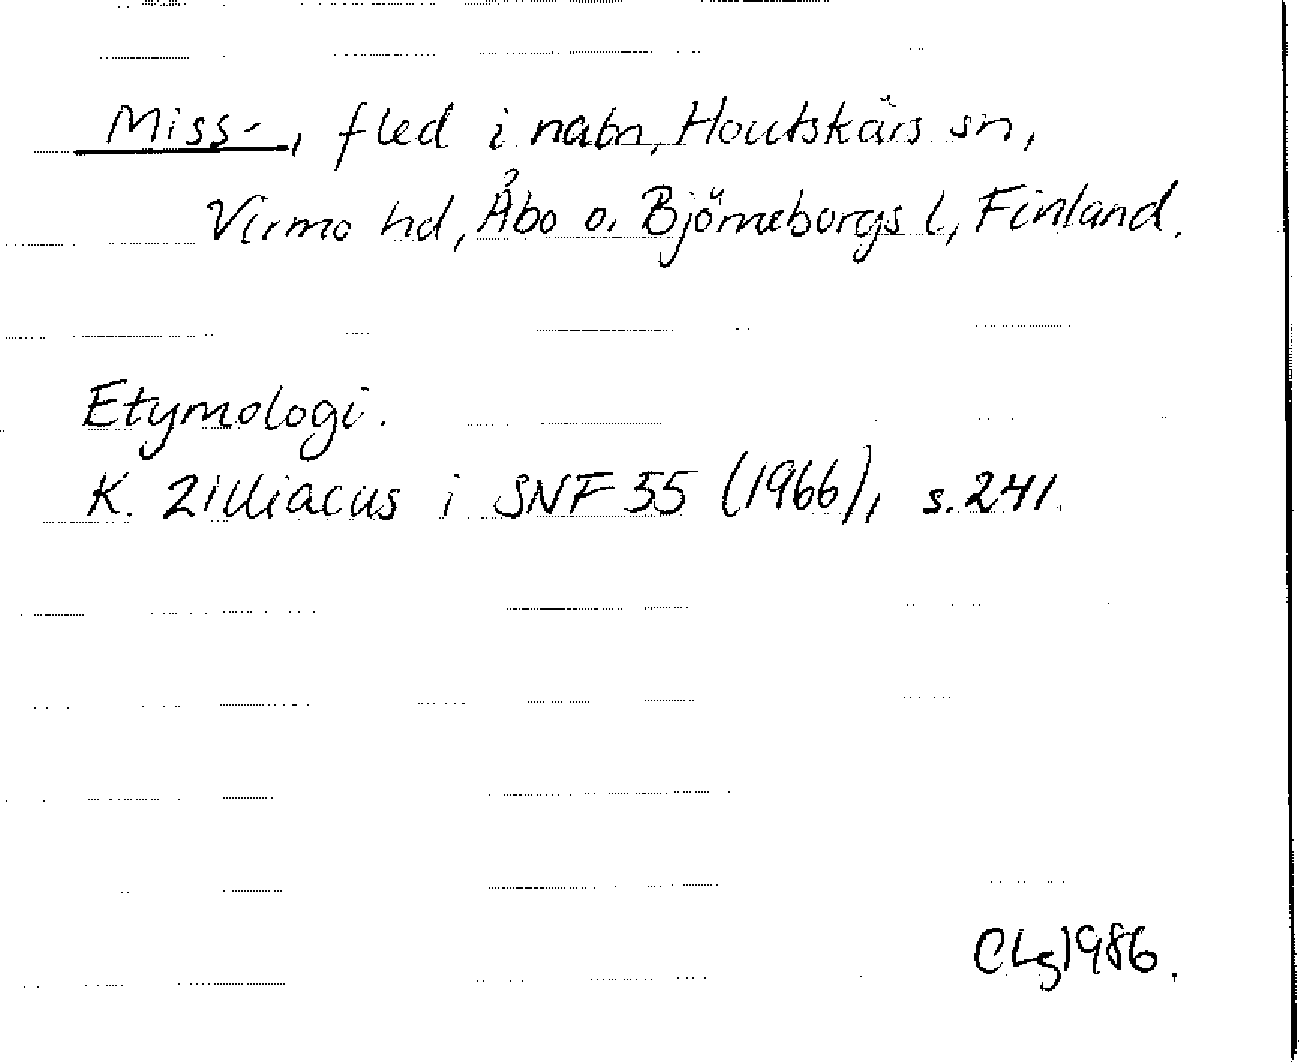 Miss-, fled i natn, Houtskärs sn,
Virmo hd, Åbo o. Björneborgs l, Finland.
Etymologi.
K. Zilliacus i SNF 55 (1966), s. 241.
CLg 1986.